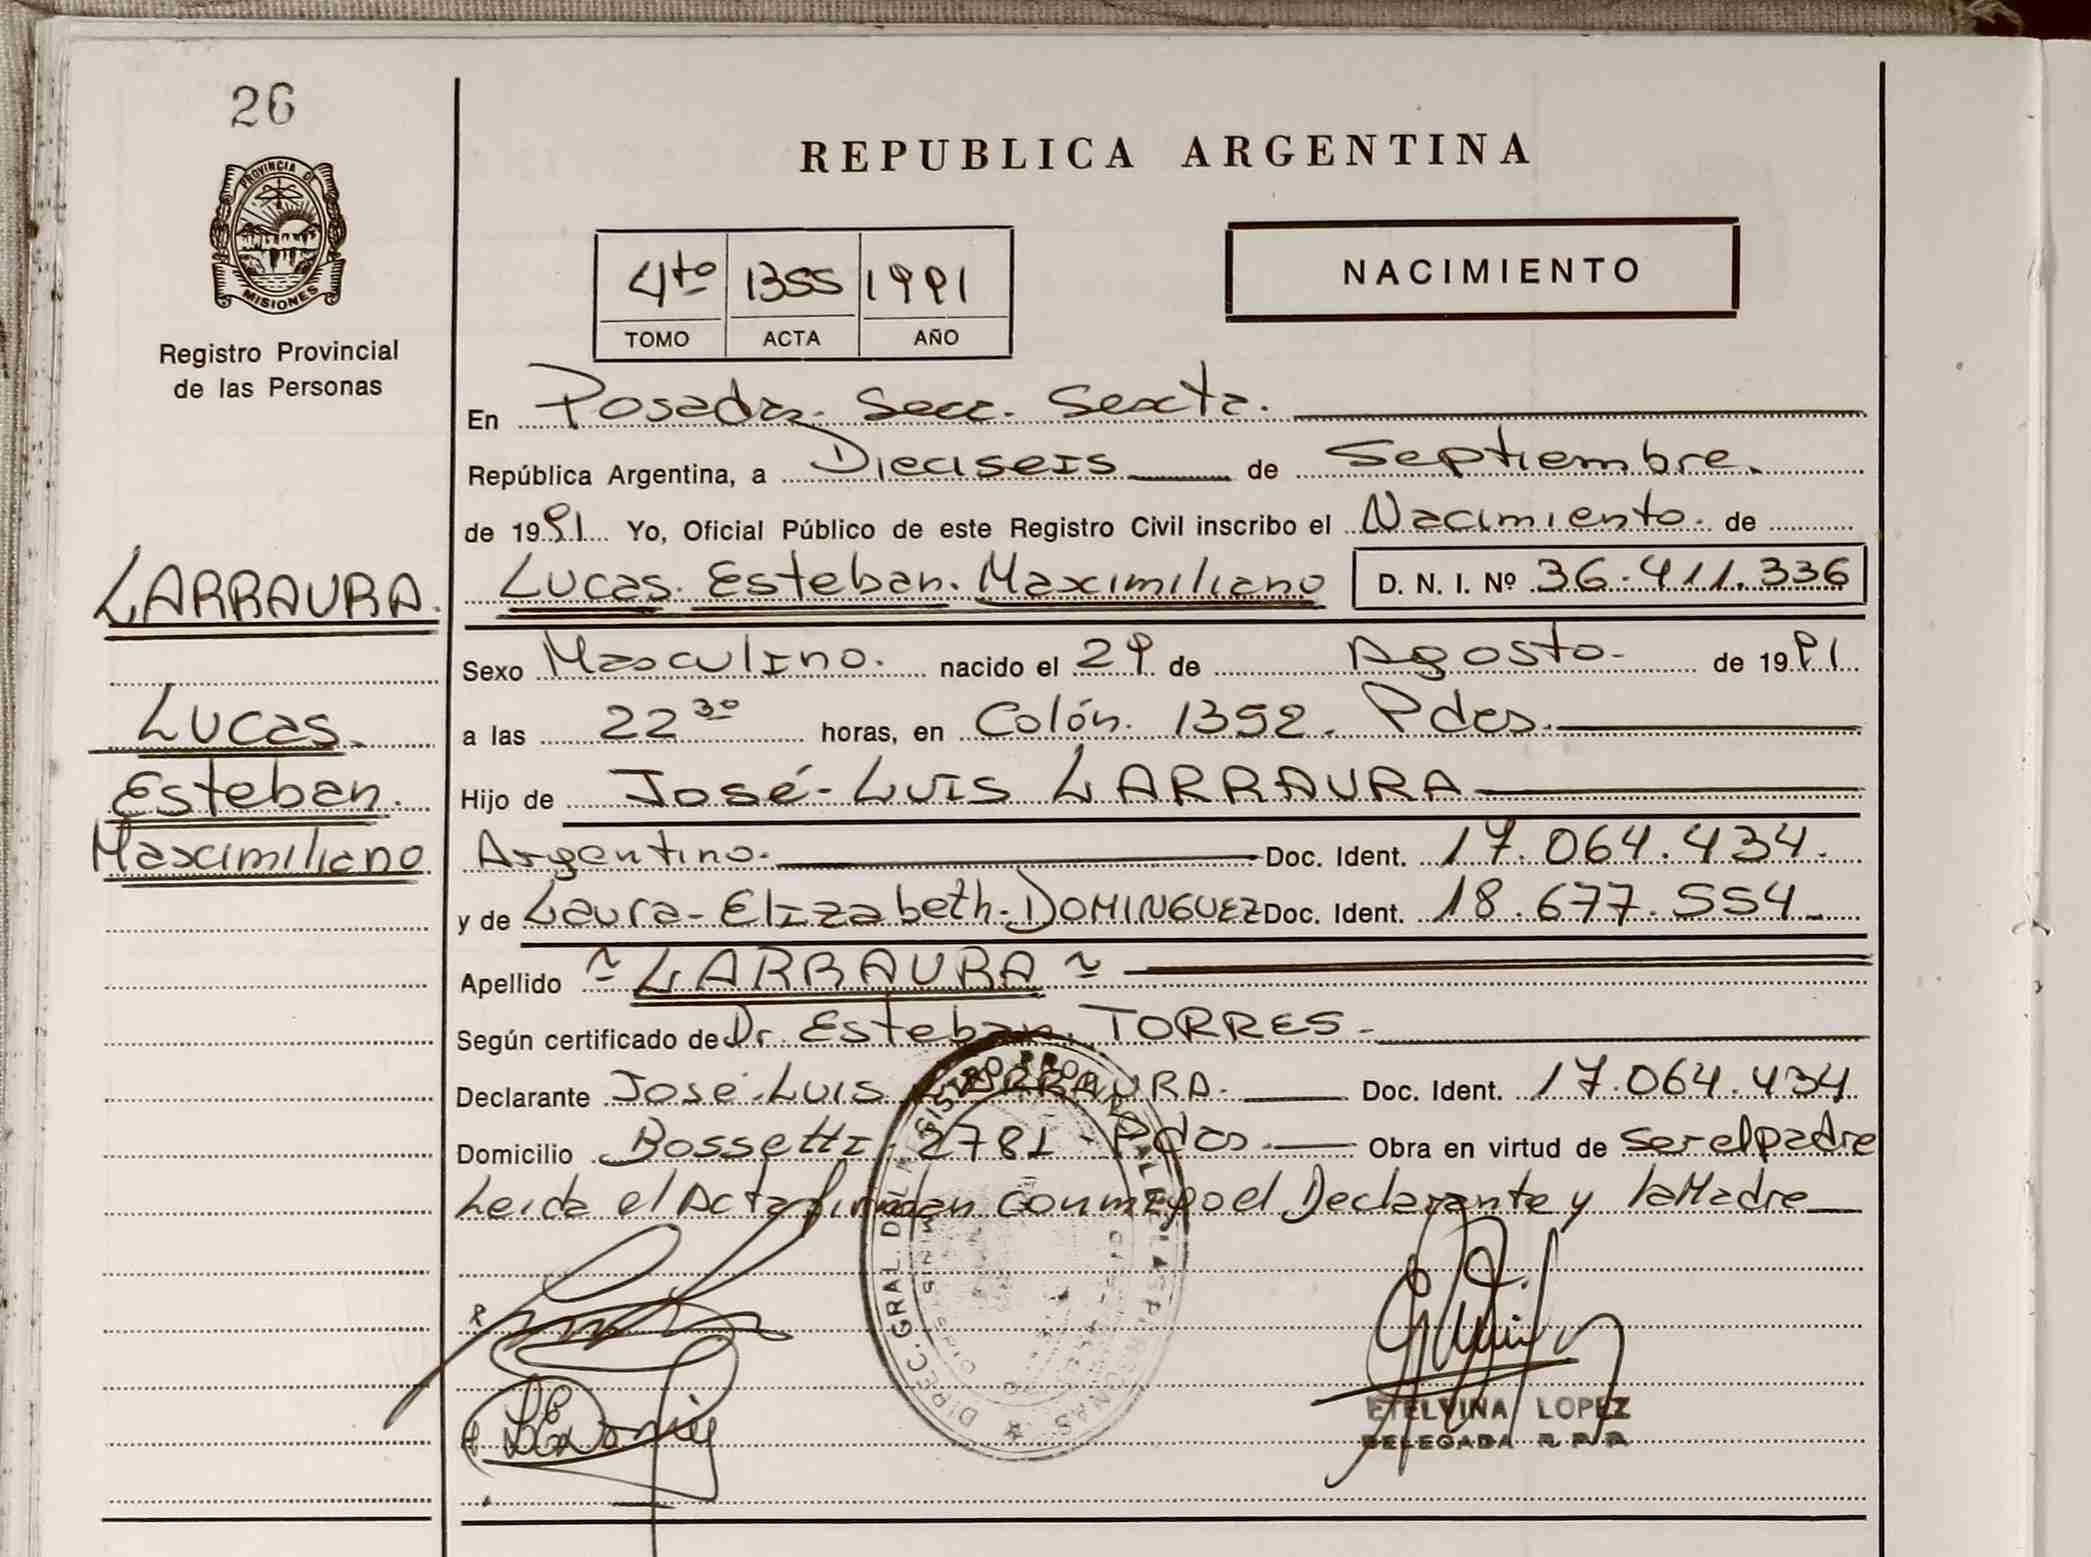 26
PROVINCIA DE
MISIONES
Registro Provincial
de las Personas
REPUBLICA ARGENTINA
4to 1355 1991
TOMO ACTA AÑO
NACIMIENTO
En Posadas. Secc. Sexta.
República Argentina, a Dieciseis de Septiembre.
de 1991 Yo, Oficial Público de este Registro Civil inscribo el Nacimiento. de
Lucas. Esteban. Maximiliano D. N. I. Nº 36.411.336
LARRAURA.
Lucas.
Esteban.
Maximiliano
Sexo Masculino. nacido el 29 de Agosto. de 1991
a las 22 30 horas, en Colón. 1392. Pdas.
Hijo de José-Luis LARRAURA
Argentino. Doc. Ident. 17.064.434.
y de Laura-Elizabeth-DOMINGUEZ Doc. Ident. 18.677.554
Apellido ~ LARRAURA ~
Según certificado de Dr. Esteban. TORRES.
Declarante José-Luis LARRAURA. Doc. Ident. 17.064.434
Domicilio Bossetti. 2781 - Pdas. Obra en virtud de ser el padre
Leida el Acta firman conmigo el Declarante y la Madre
DIREC. GRAL. DEL REGISTRO PROVINCIAL DE LAS PERSONAS
ETELVINA LOPEZ
DELEGADA R. P. P.